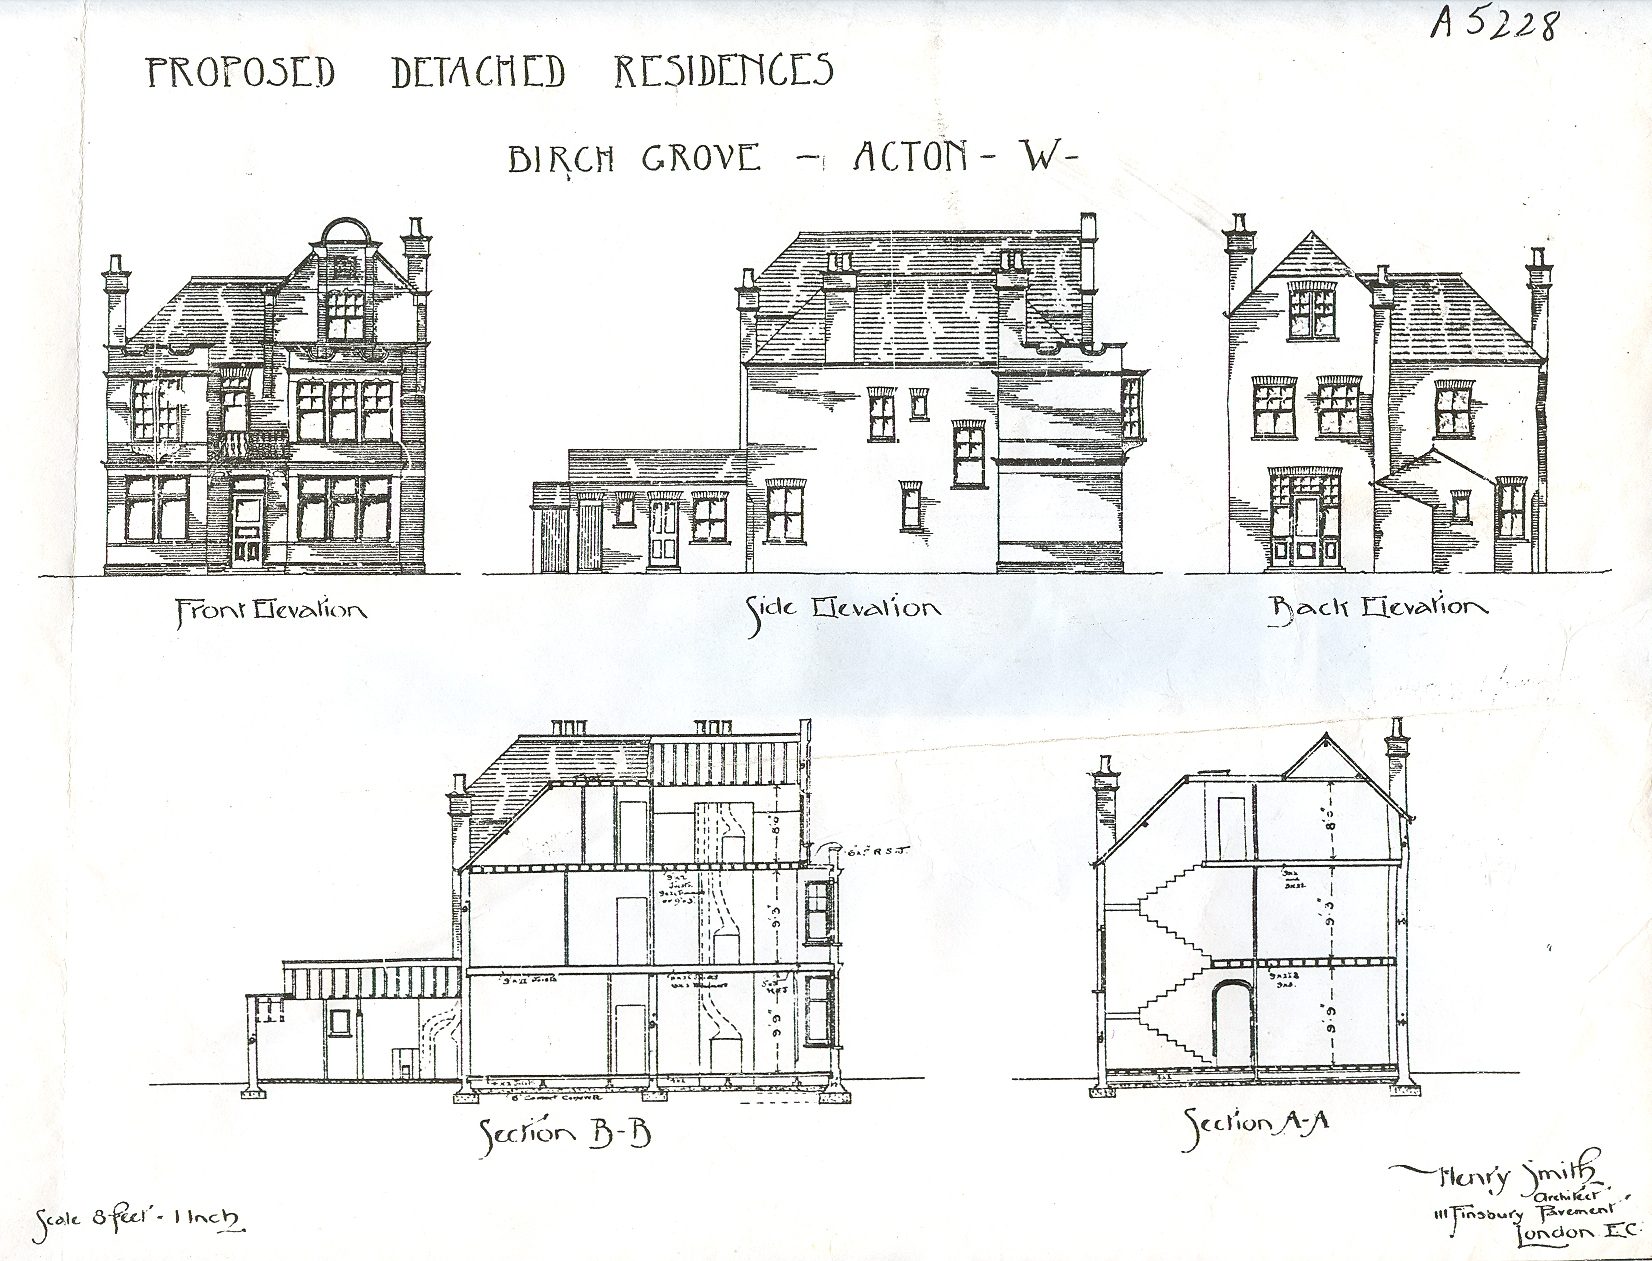 A 5228
PROPOSED DETACHED RESIDENCES
BIRCH GROVE - ACTON - W-
Front Elevation
Side Elevation
Back Elevation
6"x5" R.S.J.
8'0"
9 x 2
Joists
9'3"
9'9"
6" Cement Concrete
8'0"
9'3"
9'9"
Section B-B
Section A-A
Scale 8 feet - 1 Inch
Henry Smith
Architect
111 Finsbury Pavement
London E.C.